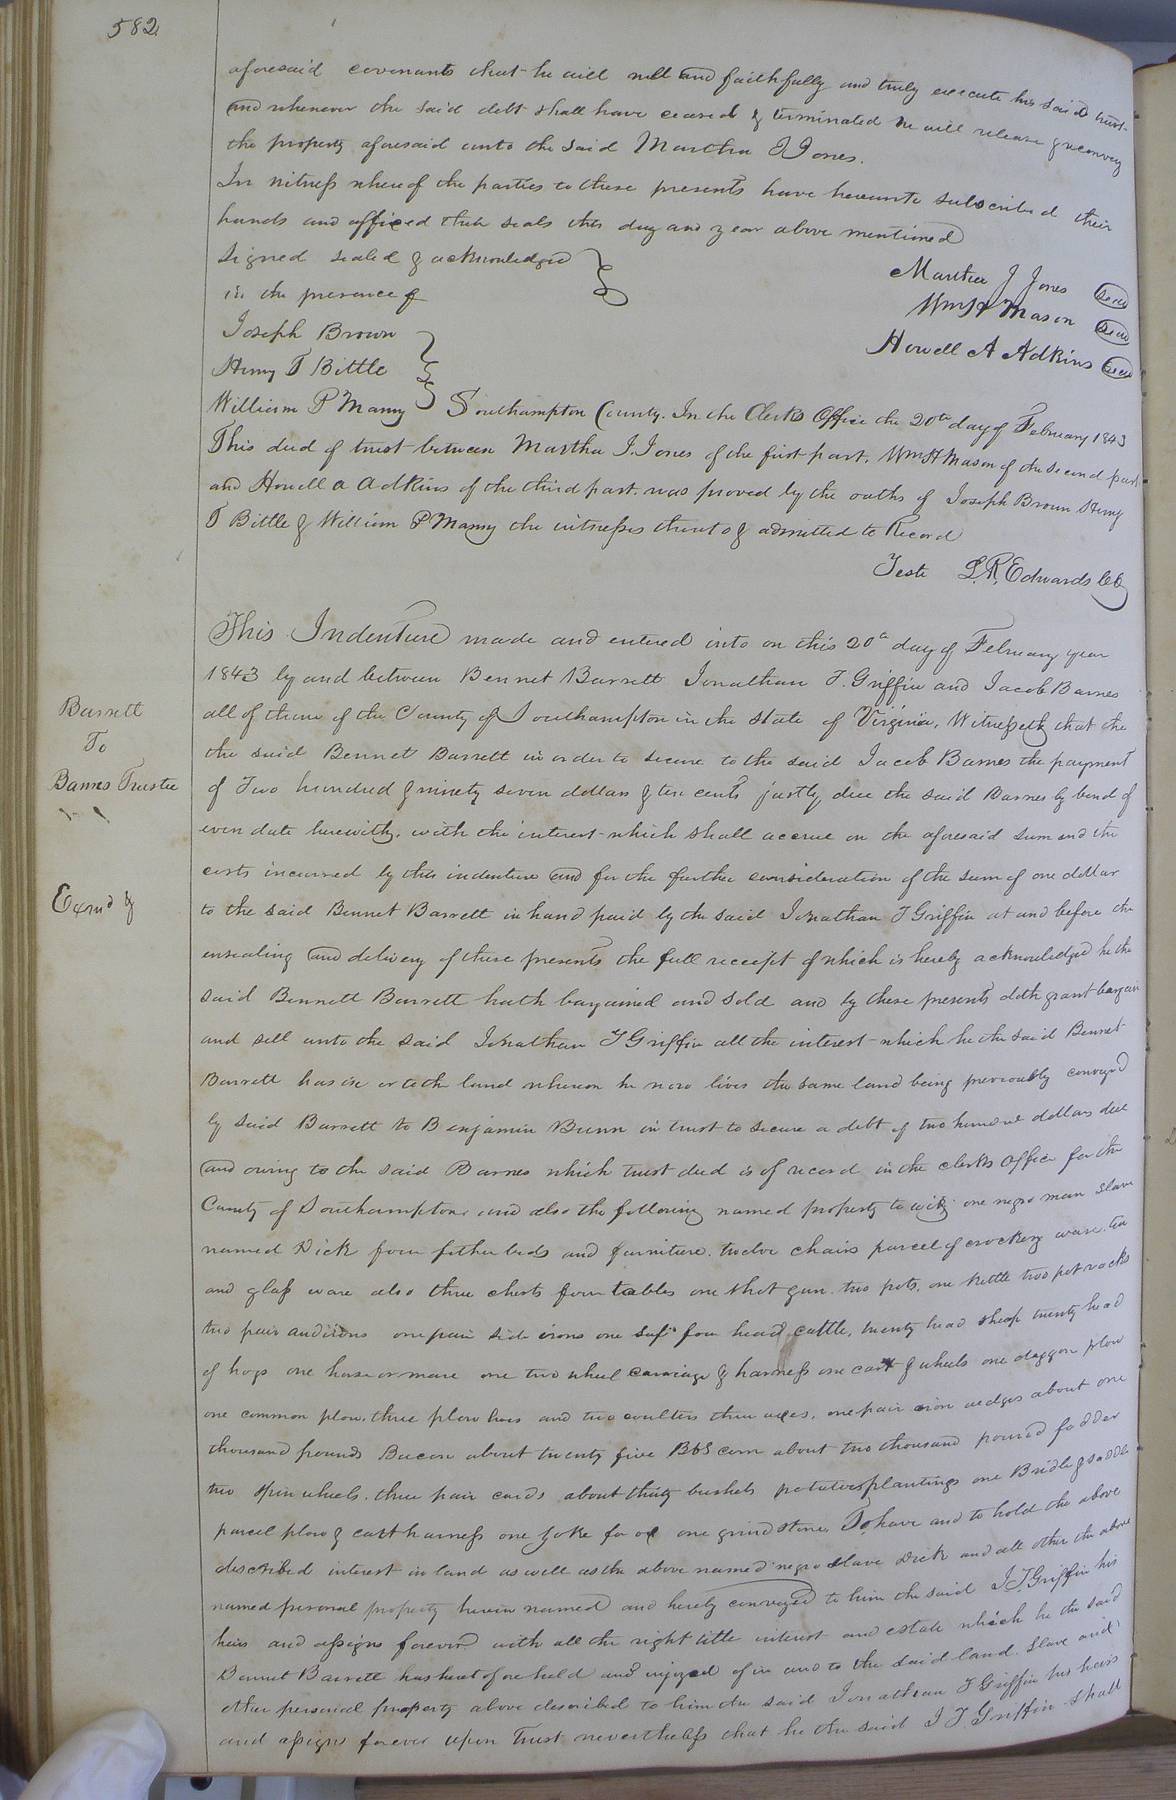 582
aforesaid covenants that he will well and faithfully and truly execute his said trust
and whenever the said debt shall have ceased & terminated he will release & reconvey
the property aforesaid unto the said Martha J Jones.
In witness whereof the parties to these presents have hereunto subscribed their
hands and affixed their seals this day and year above mentioned
Signed sealed & acknowledged
in the presence of
Martha J Jones Seal
Wm H Mason Seal
Howell A Adkins Seal
Joseph Brown
Henry T Bittle
William P Manry
Southampton County. In the Clerks Office the 20th day of February 1843
This deed of trust between Martha J. Jones of the first part, Wm H Mason of the second part
and Howell A Adkins of the third part. was proved by the oaths of Joseph Brown Henry
T Bittle & William P Manry the witnesses thereto & admitted to Record
Teste L. R. Edwards Clk
This Indenture made and entered into on this 20th day of February year
1843 by and between Bennet Barrett Jonathan T. Griffin and Jacob Barnes
all of them of the County of Southampton in the State of Virginia, Witnesseth that the
the said Bennet Barrett in order to secure to the said Jacob Barnes the payment
of Two hundred & ninety seven dollars & ten cents justly due the said Barnes by bond of
even date herewith, with the interest which shall accrue on the aforesaid sum and the
costs incurred by this indenture and for the further consideration of the sum of one dollar
to the said Bennet Barrett in hand paid by the said Jonathan T Griffin at and before the
ensealing and delivery of these presents the full receipt of which is hereby acknowledged he the
said Bennett Barrett hath bargained and sold and by these presents doth grant bargain
and sell unto the said Jonathan T Griffin all the interest which he the said Bennet
Barrett has in or to the land whereon he now lives the same land being previously conveyed
by said Barrett to Benjamin Bunn in trust to secure a debt of two hundred dollars due
and owing to the said Barnes which trust deed is of record in the clerks office for the
County of Southampton, and also the following named property to wit; one negro man slave
named Dick four fether beds and furniture. twelve chairs parcel of crockery ware. tea
and glass ware also three chests four tables one shot gun. two pots, one kettle two pot racks
two pair andirons one pair side irons one safe four head cattle, twenty head sheap twenty head
of hogs one horse or mare one two wheel carriage & harness one cart & wheels one daggon plow
one common plow, three plow hoes and two coulters three axes, one pair iron wedges about one
thousand pounds Bacon about twenty five Bbs corn about two thousand pound fodder
two spin wheels. three pair cards about thirty bushels potatoes plantings one Bridle & saddle
parcel plow & cart harness one yoke for ox one grind stone, To have and to hold the above
described interest in land as well as the above named negro slave Dick and all other the above
named personal property herein named and hereby conveyed to him the said J. T. Griffin his
heirs and assigns forever with all the right title interest and estate which he the said
Bennet Barrett has heretofore held and injoyed of in and to the said land. slave and
other personal property above described to him the said Jonathan T Griffin his heirs
and assigns forever upon Trust nevertheless that he the said J T Griffin shall
Barrett
To
Barnes Trustee
Exmd &